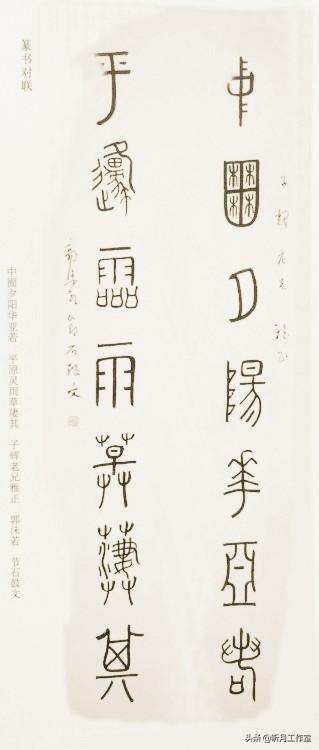 子輝老兄雅正
中囿夕陽華亞若
平邍霝雨草淒其
郭沫若節石鼓文
篆书对联
中囿夕阳华亚若 平原灵雨草凄其 子辉老兄雅正 郭沫若 节石鼓文
头条 @听月工作室